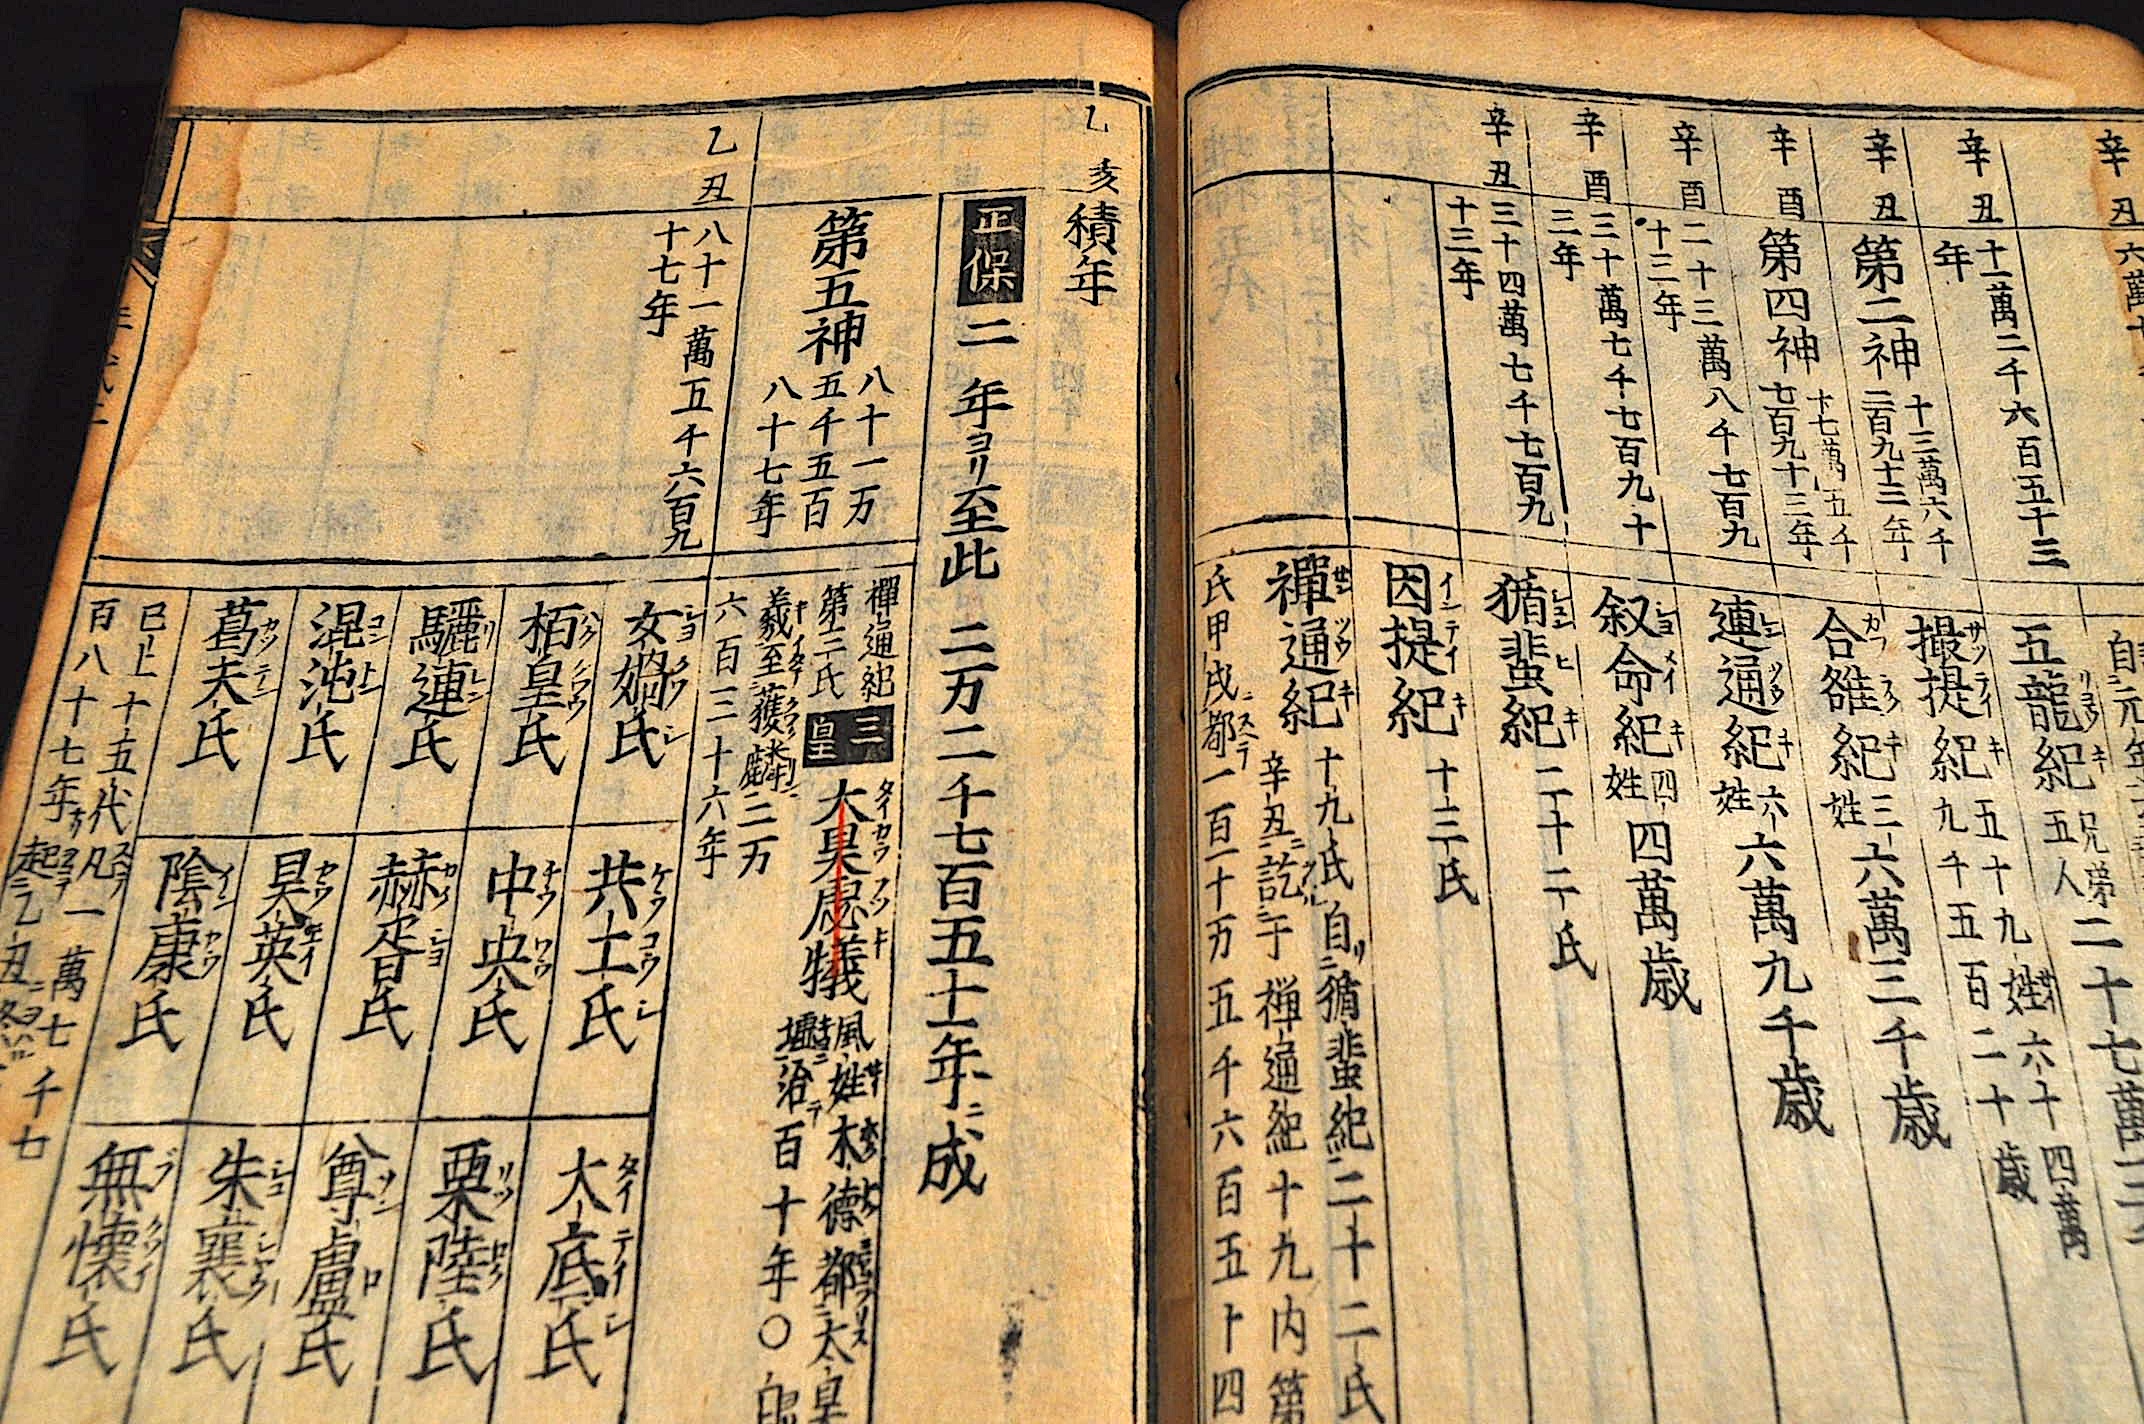 辛丑
六萬
自元年
二十七萬三千
辛丑
十一萬二千六百五十三
年
五龍紀
リヨウ
キ
兄弟
五人
辛丑
第二神
十三萬六千
二百九十三年
攝提紀
サツテイキ
五十九姓六十四萬
九千五百二十歳
辛酉
第四神
十七萬五千
七百九十三年
合雒紀
カフラクキ
三
姓
六萬三千歳
辛酉
二十三萬八千七百九
十三年
連通紀
レンツウキ
六
姓
六萬九千歳
辛酉
三十萬七千七百九十
三年
叙命紀
シヨメイキ
四
姓
四萬歳
辛丑
三十四萬七千七百九
十三年
循蜚紀
二十二氏
因提紀
インテイキ
十三氏
禪通紀
ゼンツウキ
十九氏自循蜚紀二十二氏
辛丑訖于禅通紀十九内第
氏甲戌都一百一十万五千六百五十四
乙亥
積年
正保二年ヨリ至此二万二千七百五十一年ニ成
第五神
八十一万
五千五百
八十七年
禪通紀
第三氏
三皇
太昊宓犠
タイカウフツキ
風姓木徳都
治百十年〇
羲至獲麟三万
六百三十六年
乙丑
八十一萬五千六百九
十七年
女媧氏
共工氏
大底氏
栢皇氏
中央氏
栗陸氏
驪連氏
赫胥氏
尊盧氏
混沌氏
昊英氏
朱襄氏
葛天氏
陰康氏
無懐氏
已上十五代凡一萬七千七
百八十七年起乙丑